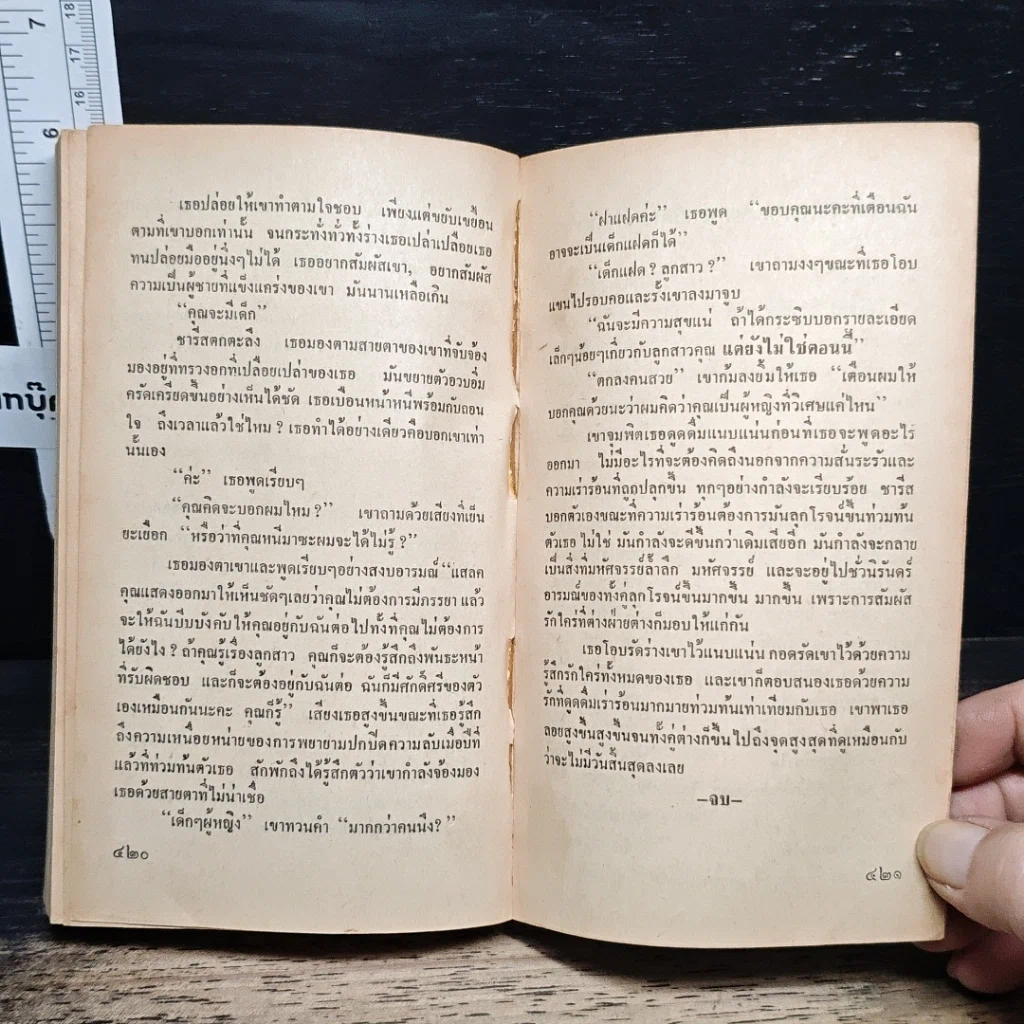 7
6
18
17
16
กบุ๊
เธอปล่อยให้เขาทำตามใจชอบ เพียงแต่ขยับเขยื้อน
ตามที่เขาบอกเท่านั้น จนกระทั่งทั่วทั้งร่างเธอเปล่าเปลือยเธอ
ทนปล่อยมืออยู่นิ่งๆไม่ได้ เธออยากสัมผัสเขา, อยากสัมผัส
ความเป็นผู้ชายที่แข็งแกร่งของเขา มันนานเหลือเกิน
“คุณจะมีเด็ก”
ชารีสตกตะลึง เธอมองตามสายตาของเขาที่จับจ้อง
มองอยู่ที่ทรวงอกที่เปลือยเปล่าของเธอ มันขยายตัวอวบอิ่ม
ครัดเครียดขึ้นอย่างเห็นได้ชัด เธอเบือนหน้าหนีพร้อมกับถอน
ใจ ถึงเวลาแล้วใช่ไหม? เธอทำได้อย่างเดียวคือบอกเขาเท่า
นั้นเอง
“ค่ะ” เธอพูดเรียบๆ
“คุณคิดจะบอกผมไหม?” เขาถามด้วยเสียงที่เย็น
ยะเยือก “หรือว่าที่คุณหนีมาซะผมจะได้ไม่รู้?”
เธอมองตาเขาและพูดเรียบๆอย่างสงบอารมณ์ “แสลค
คุณแสดงออกมาให้เห็นชัดๆเลยว่าคุณไม่ต้องการมีภรรยา แล้ว
จะให้ฉันบีบบังคับให้คุณอยู่กับฉันต่อไปทั้งที่คุณไม่ต้องการ
ได้ยังไง? ถ้าคุณรู้เรื่องลูกสาว คุณก็จะต้องรู้สึกถึงพันธะหน้า
ที่รับผิดชอบ และก็จะต้องอยู่กับฉันต่อ ฉันก็มีศักดิ์ศรีของตัว
เองเหมือนกันนะคะ คุณก็รู้” เสียงเธอสูงขึ้นขณะที่เธอรู้สึก
ถึงความเหนื่อยหน่ายของการพยายามปกปิดความลับเมื่อปีที่
แล้วที่ท่วมท้นตัวเธอ สักพักถึงได้รู้สึกตัวว่าเขากำลังจ้องมอง
เธอด้วยสายตาที่ไม่น่าเชื่อ
“เด็กๆผู้หญิง” เขาทวนคำ “มากกว่าคนนึง?”
๔๒๐
“ฝาแฝดค่ะ” เธอพูด “ขอบคุณนะคะที่เตือนฉัน
อาจจะเป็นเด็กแฝดก็ได้”
“เด็กแฝด? ลูกสาว?” เขาถามงงๆขณะที่เธอโอบ
แขนไปรอบคอและรั้งเขาลงมาจูบ
“ฉันจะมีความสุขแน่ ถ้าได้กระซิบบอกรายละเอียด
เล็กๆน้อยๆเกี่ยวกับลูกสาวคุณ แต่ยังไม่ใช่ตอนนี้”
“ตกลงคนสวย” เขาก้มลงยิ้มให้เธอ “เตือนผมให้
บอกคุณด้วยนะว่าผมคิดว่าคุณเป็นผู้หญิงที่วิเศษแค่ไหน”
เขาจุมพิตเธอดูดดื่มแนบแน่นก่อนที่เธอจะพูดอะไร
ออกมา ไม่มีอะไรที่จะต้องคิดถึงนอกจากความสั่นระรัวและ
ความเร่าร้อนที่ถูกปลุกขึ้น ทุกๆอย่างกำลังจะเรียบร้อย ชารีส
บอกตัวเองขณะที่ความเร่าร้อนต้องการมันลุกโรจน์ขึ้นท่วมท้น
ตัวเธอ ไม่ใช่ มันกำลังจะดีขึ้นกว่าเดิมเสียอีก มันกำลังจะกลาย
เป็นสิ่งที่มหัศจรรย์ล้ำลึก มหัศจรรย์ และจะอยู่ไปชั่วนิรันดร์
อารมณ์ของทั้งคู่ลุกโรจน์ขึ้นมากขึ้น มากขึ้น เพราะการสัมผัส
รักใคร่ที่ต่างฝ่ายต่างก็มอบให้แก่กัน
เธอโอบรัดร่างเขาไว้แนบแน่น กอดรัดเขาไว้ด้วยความ
รู้สึกรักใคร่ทั้งหมดของเธอ และเขาก็ตอบสนองเธอด้วยความ
รักที่ดูดดื่มเร่าร้อนมากมายท่วมท้นเท่าเทียมกับเธอ เขาพาเธอ
ลอยสูงขึ้นสูงขึ้นจนทั้งคู่ต่างก็ขึ้นไปถึงจุดสูงสุดที่ดูเหมือนกับ
ว่าจะไม่มีวันสิ้นสุดลงเลย
—จบ—
๔๒๑